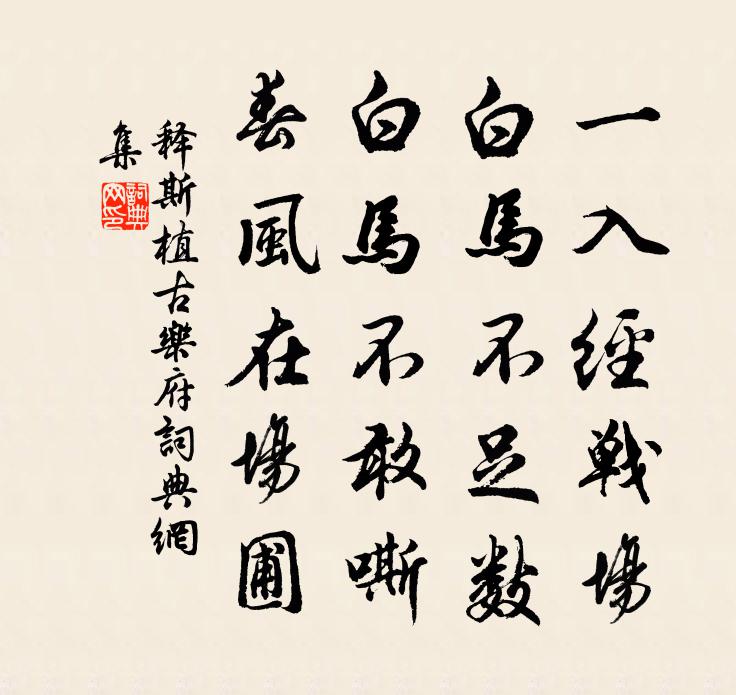 一入經戰場
白馬不足数
白馬不敢嘶
春風在場圃
释斯植古樂府詞典網
集
詞典網印